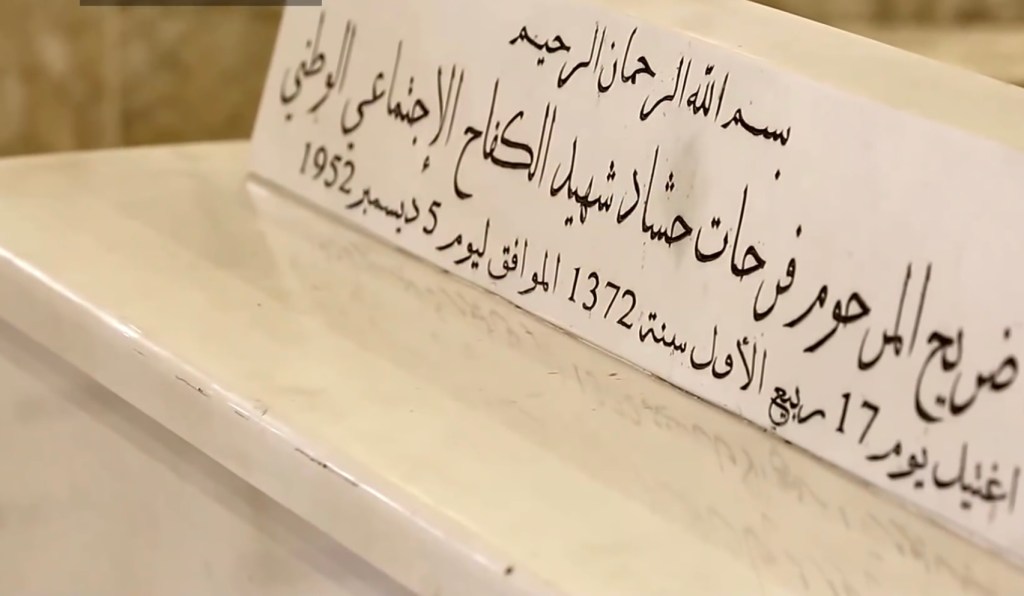 بسم الله الرحمان الرحيم
ضريح المرحوم فرحات حشاد شهيد الكفاح الإجتماعي الوطني
اغتيل يوم 17 ربيع الأول سنة 1372 الموافق ليوم 5 ديسمبر 1952